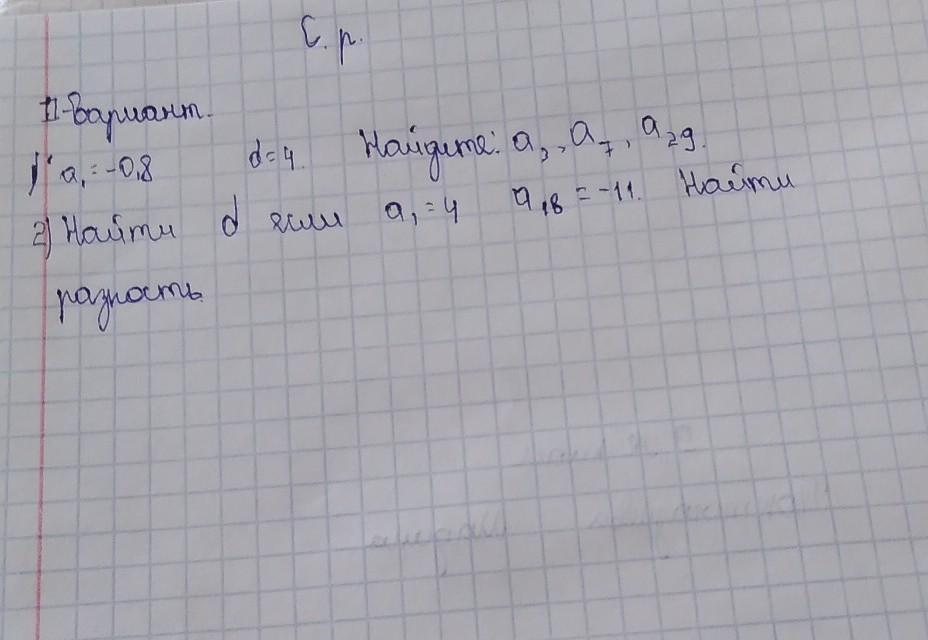 С. р.
II-Вариант.
1) a₁=-0,8 d=4. Найдите: a₃, a₇, a₂₉.
2) Найти d если a₁=4 a₁₈=-11. Найти
разность.